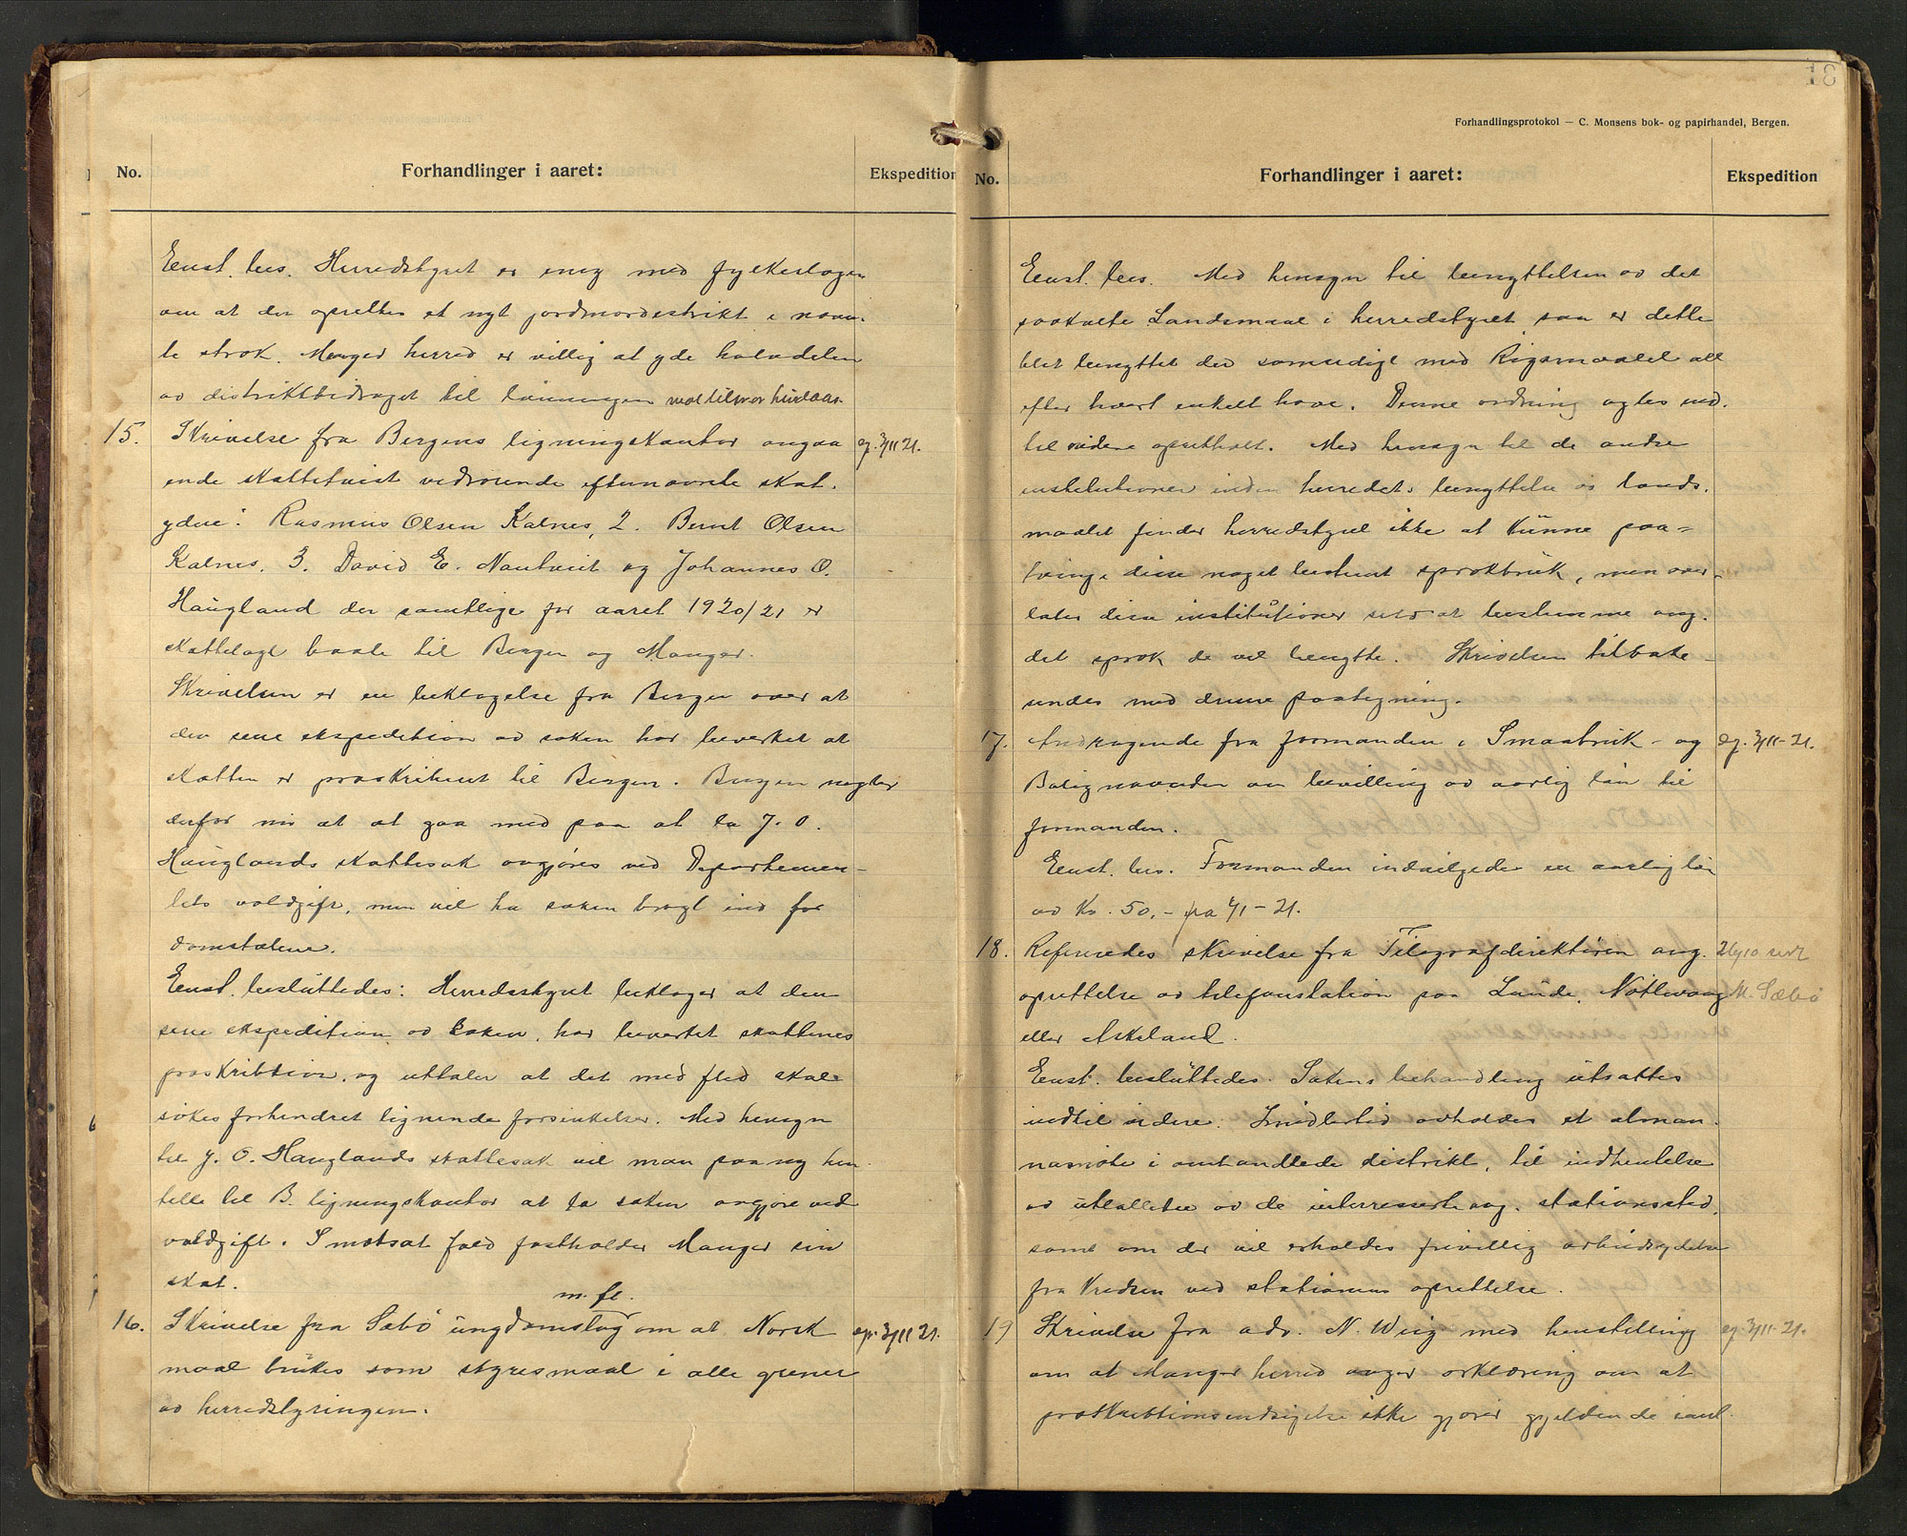 No.
Forhandlinger i aaret:
Ekspedition
Enst. bes. Herredstyret er enig med fylkeslægen
om at der oprettes et nyt jordmordistrikt i nævn-
te strøk. Manger herred er villig at yde halvdelen
av distriktbidraget til lønningen
15. Skrivelse fra Bergens ligningskontor angaa ep. 3/11 21.
ende skattetvist vedrørende efternævnte skat-
ydere: Rasmus Olsen Kalnes, 2. Bernt Olsen
Kalnes. 3. David E. Nautveit og Johannes O.
Haugland der samtlige for aaret 1920/21 er
skattelagt baate til Bergen og Manger.
Skrivelsen er en beklagelse fra Bergen over at
den sene ekspedition av saken har bevirket at
skatten er præskribert til Bergen. Bergen negter
derfor nu at at gaa med paa at la J. O.
Hauglands skattesak avgjøres ved Departemen-
tets voldgift, men vil ha saken bragt ind for
domstolene.
Enst. besluttedes: Herredsstyret beklager at den
sene ekspedition av saken, har bevirket skattenes
præskribtion, og uttaler at det med flid skal
søkes forhindret lignende forsinkelser. Med hensyn
til J. O. Hauglands skattesak vil man paany hen-
stille til B. ligningskontor at la saken avgjøre ved
voldgift. I motsat fald fastholder Manger sin
skat.
m. fl.
16. Skrivelse fra Sæbø ungdomslag om at Norsk ep. 3/11 21.
maal brukes som styresmaal i alle grener
av herredstyringen.
18
Forhandlingsprotokol — C. Monsens bok- og papirhandel, Bergen.
No.
Forhandlinger i aaret:
Ekspedition
Enst. bes. Med hensyn til benyttelsen av det
saakalte Landsmaal i herredstyret saa er dette
blit benyttet der samtidigt med Rigsmaalet alt
efter hvert enkelt have. Denne ordning agtes ind-
til videre opretholt. Med hensyn til de andre
institutioner inden herredets benyttelse av lands-
maalet finder herredstyret ikke at kunne paa-
tvinge disse noget bestemt sprokbruk, men over-
later disse institutioner selv at bestemme ang.
det sprok de vil benytte. Skrivelsen tilbake-
sendes med denne paategning.
17. Andragende fra formanden i Smaabruk- og ep. 3/11-21.
Bolignævnden om bevilling av aarlig løn til
formanden.
Enst. bes. Formanden indvilgedes en aarlig løn
av Kr. 50,- fra 1/1-21.
18. Refereredes skrivelse fra Telegrafdirektøren ang. 26/10 sendt
oprettelse av telefonstation paa Lunde, Nøtlevaag M. Sæbø
eller Askeland.
Enst. besluttedes. Sakens behandling utsattes
indtil videre. Imidlertid avholdes et alman-
namøte i omhandlede distrikt, til indhentelse
av uttallelse av de interresserte ang. stationssted,
samt om der vil erholdes frivillig arbeidsydelse
fra kredsen ved stationens oprettelse.
19 Skrivelse fra adv. N. Wiig med henstilling ep. 3/11-21.
om at Manger herred avger erklæring om at
præskribtionsindsigelse ikke gjøres gjeldende